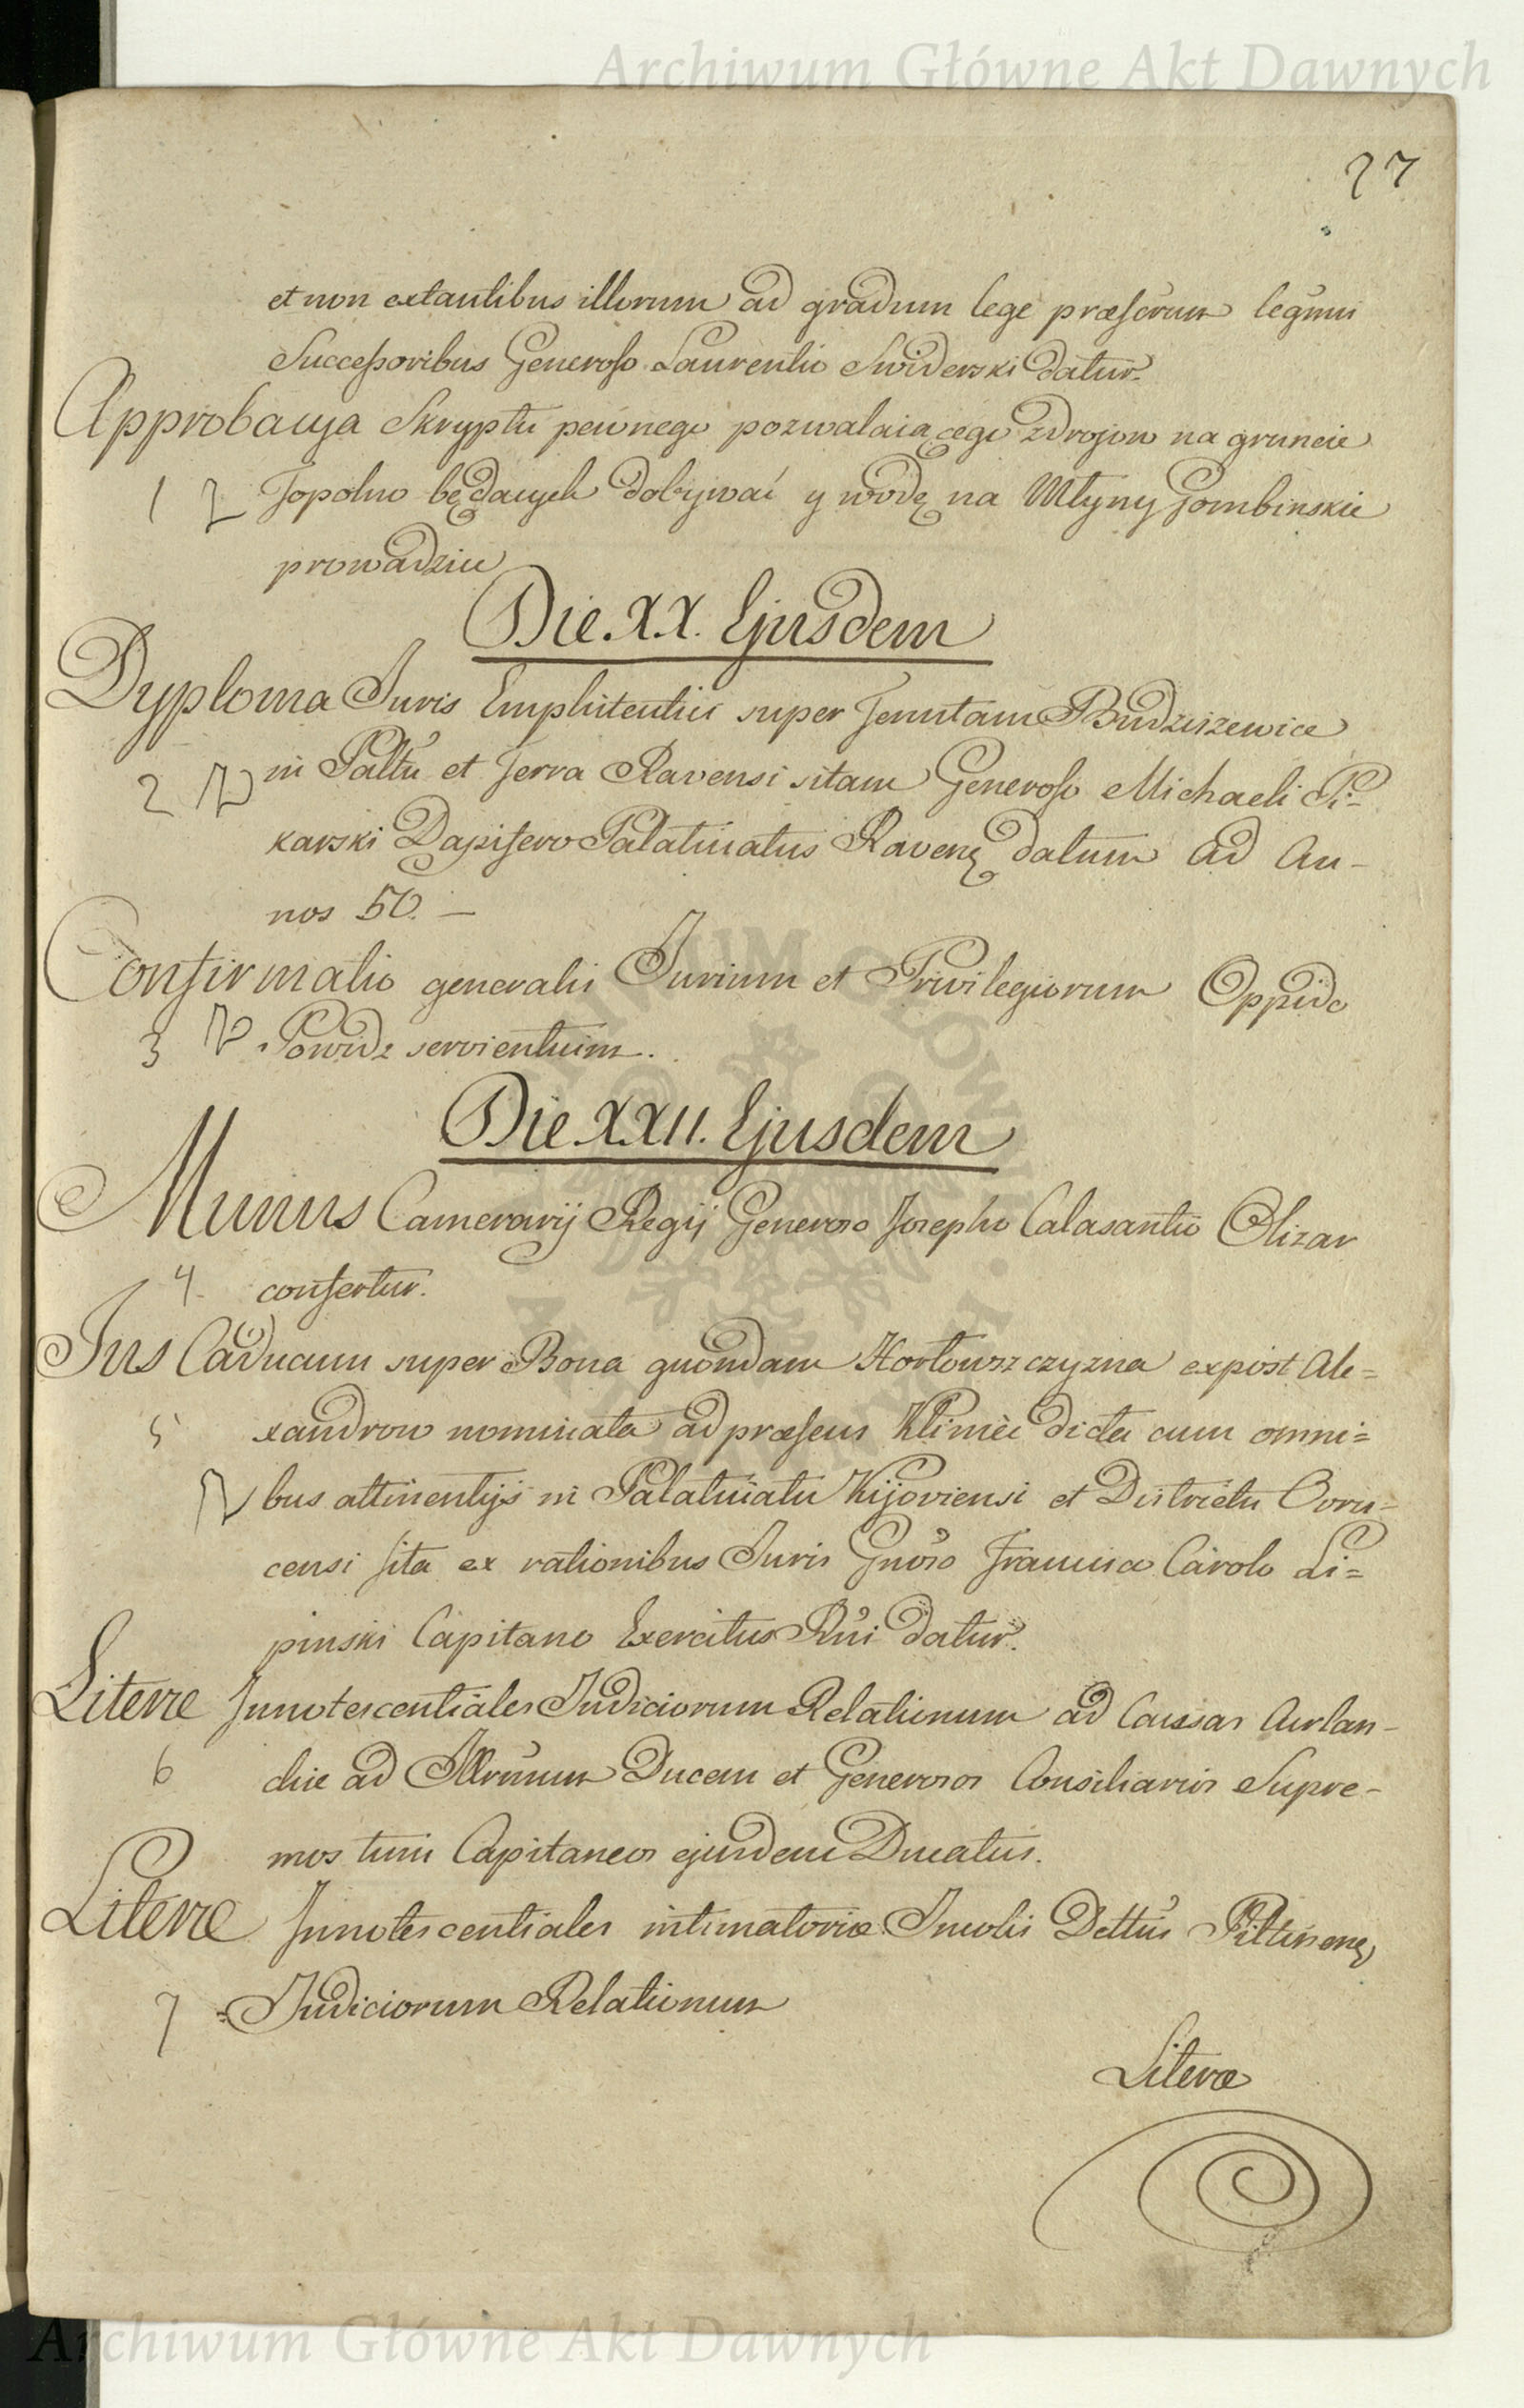 Archiwum Główne Akt Dawnych
27
et non extantibus illorum ad gradum lege præscrum legũmi
Successoribus Generoso Laurentio Swiderski datur.
Approbacya Skryptu pewnego pozwalaiącego zdrojow na gruncie
1 Topolno będących dobywać y wodę na Młyny Gombinskie
prowadzić
Die XX. Ejusdem
Dyploma Juris Emphiteutici super Tenutam Budziszewice
2 in Paltũ et Terra Ravensi sitam Generoso Michaeli Pi=
karski Dapifero Palatinatus Ravenę datum ad An-
nos 50. —
Confirmatio generalis Jurium et Privilegiorum Oppido
3 Powidz servientium.
Die XXII. Ejusdem
Munus Camerarij Regij Generoso Josepho Calasantio Olizar
4. confertur.
Jus Caducum super Bona quondam Hortowszczyzna expost Ale=
5 xandrow nominata ad præsens Klimêc dicta cum omni=
bus attinentijs in Palatinatu Kijoviensi et Districtu Ovru=
censi sita ex rationibus Juris Gnõso Francisco Carolo Li=
pinski Capitano Exercitus Rni datur.
Literæ Innotescentiales Judiciorum Relationum ad Caussas Curlan-
6 diæ ad Illrũmum Ducem et Generosos Consiliarios Supre-
mos tum Capitaneos ejusdem Ducatus.
Literæ Innotescentiales intimatoriæ Incolis Dcttũs Piltinenę
7 Judiciorum Relationum
Literæ
Archiwum Główne Akt Dawnych